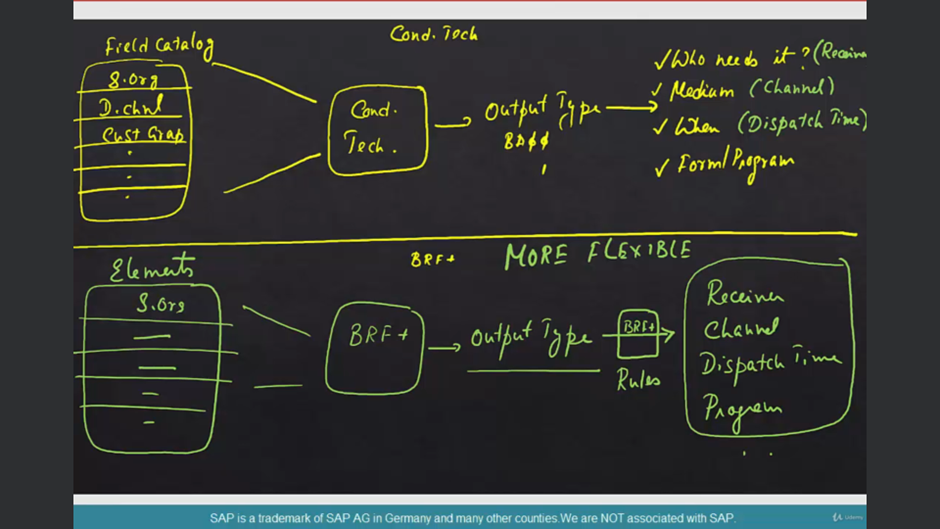 Cond. Tech
Field Catalog
S.Org
D.chnl
Cust Grap
Cond.
Tech.
Output Type
BAØØ
✓Who needs it? (Receive
✓ Medium (Channel)
✓ When (Dispatch Time)
✓ Form/Program
BRF+
MORE FLEXIBLE
Elements
S.Org
BRF+
Output Type
BRF+
Rules
Receiver
Channel
Dispatch Time
Program
SAP is a trademark of SAP AG in Germany and many other counties.We are NOT associated with SAP.
Udemy